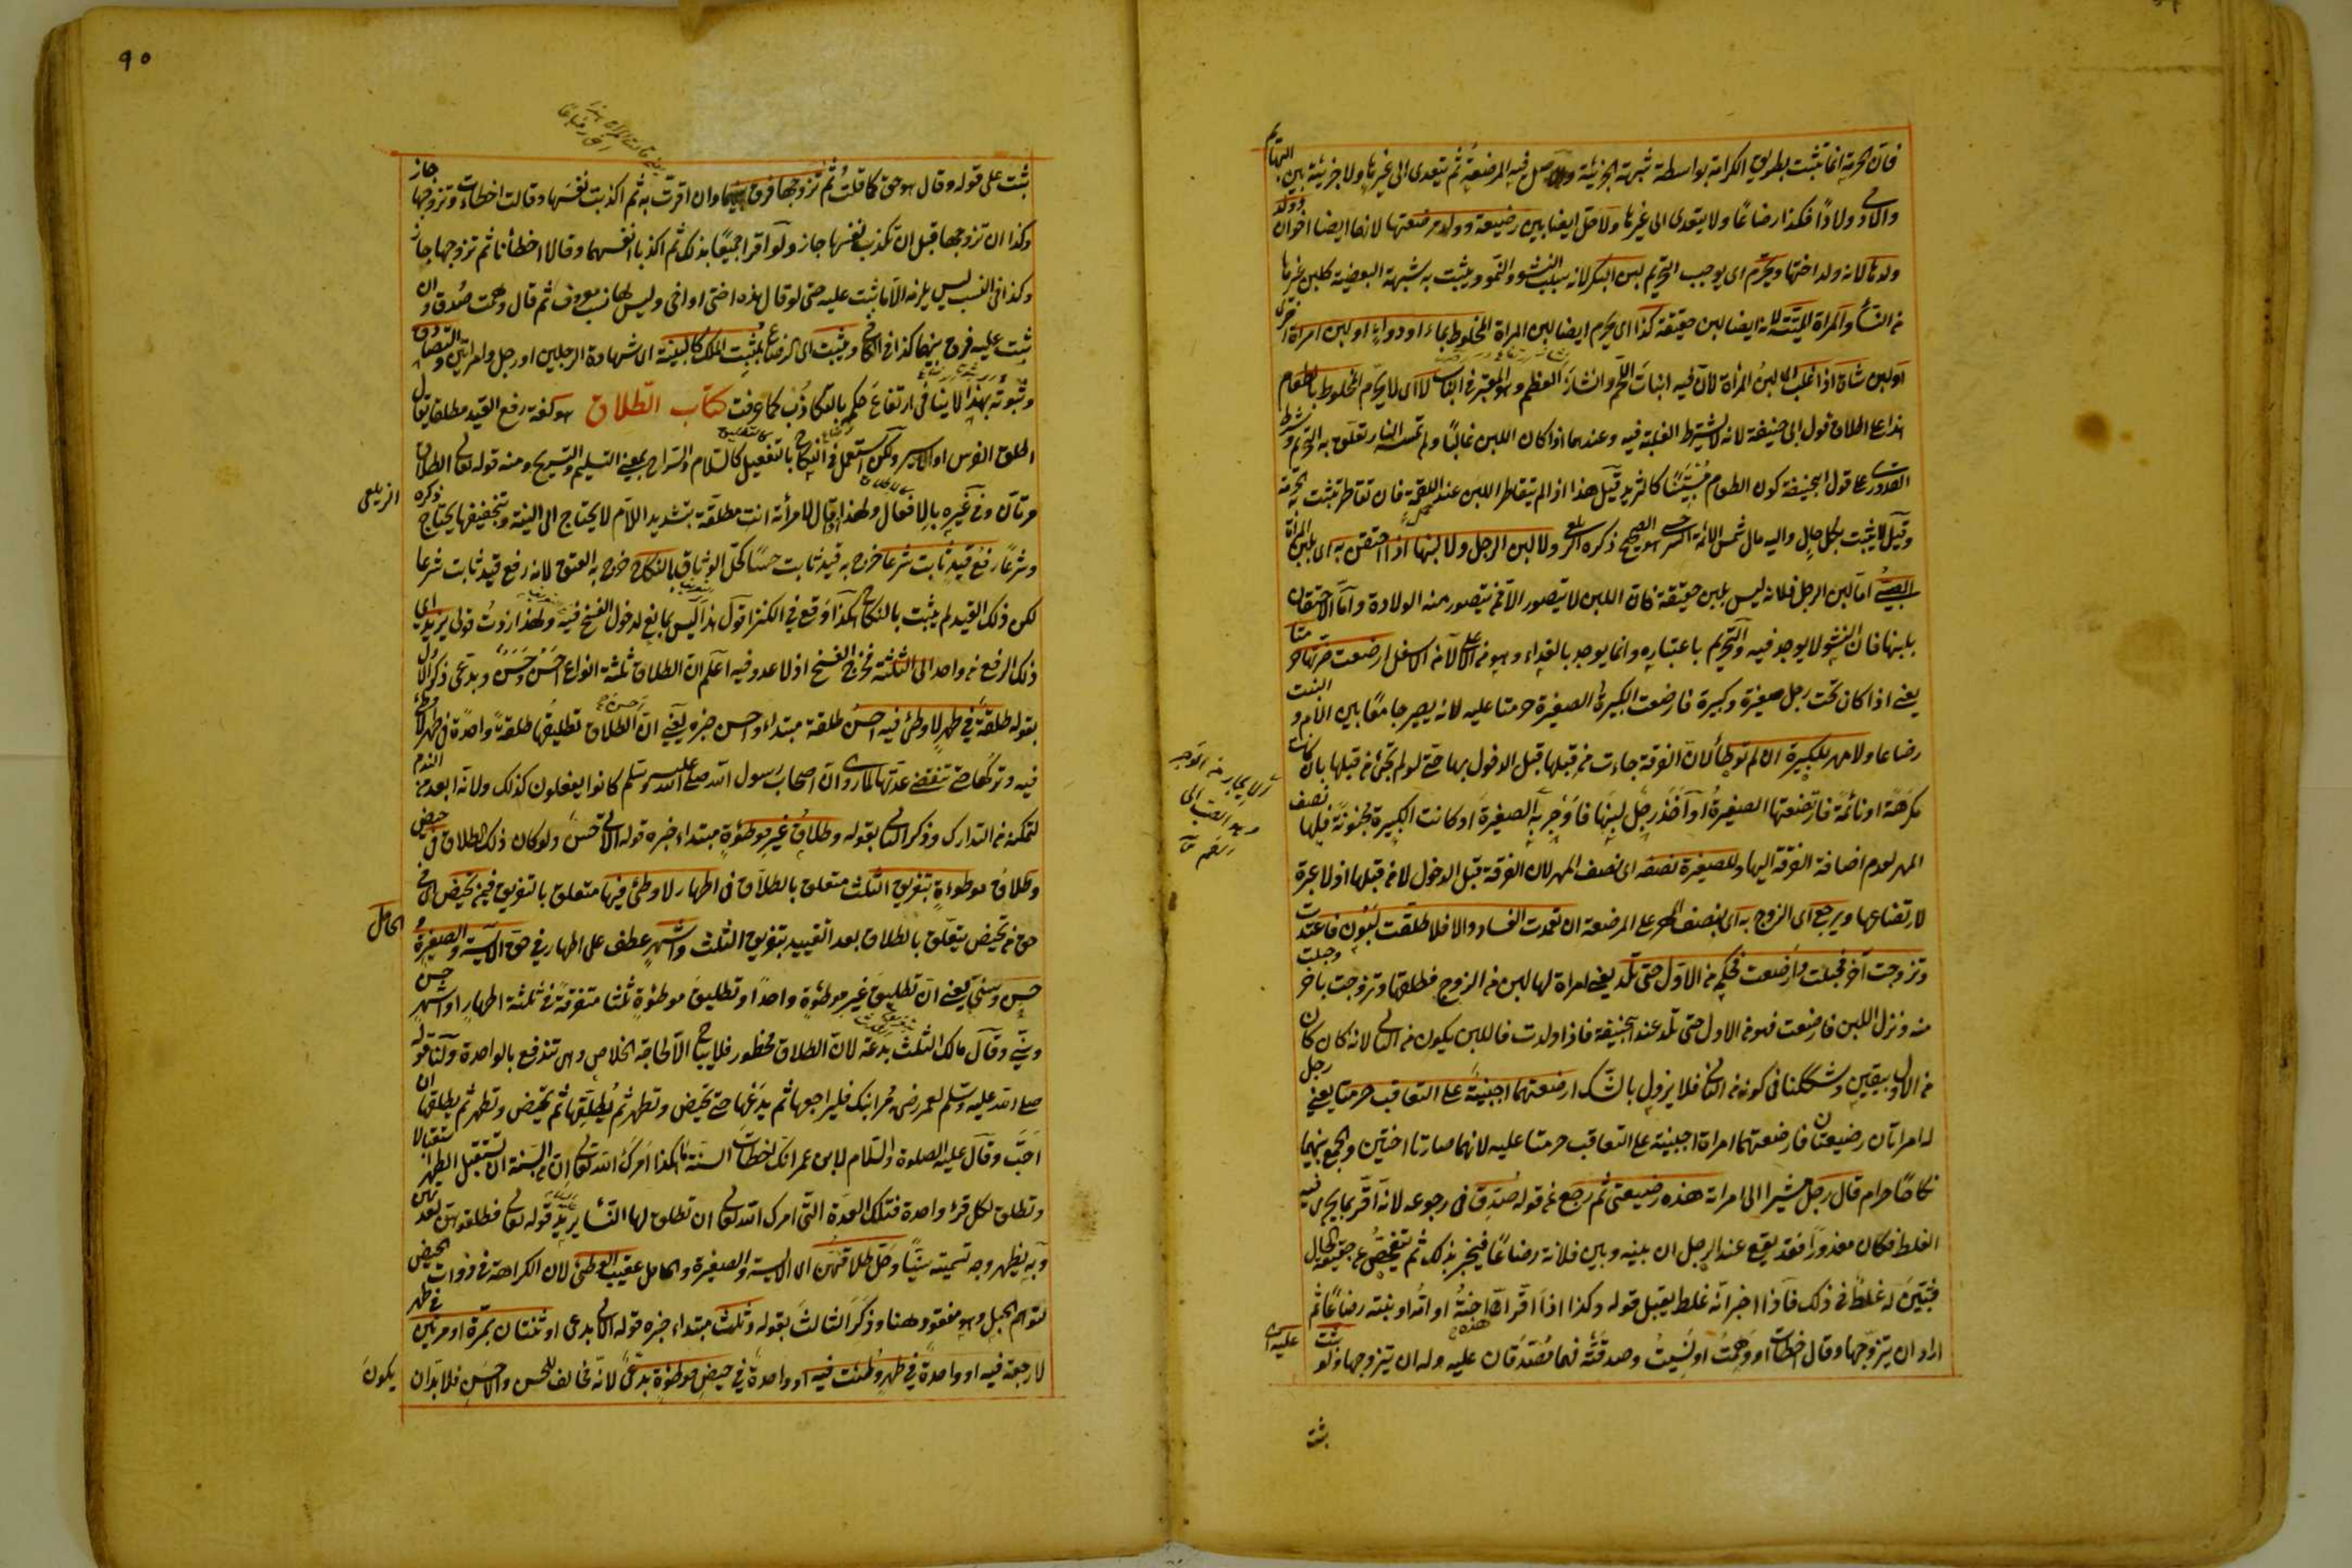 فان الحرمة انما تثبت بطريق الكرامة بواسطة شبهة الجزئية والاصل فيه المرضعة ثم يتعدى الى غيرها ولا جزئية بين البهائم
والآدمي ولادا فكذا رضاعا ولا يتعدى الى غيرها ولا حل ايضا بين رضيعة وولد مرضعتها لانهما ايضا اخوان وولد
ولدها لانه ولد اختها ويحرم اى يوجب التحريم لبن البكر لانه سبب النشو والنمو ويثبت به شبهة البعضية كلبن غيرها
من النساء والمرأة الميتة لانه ايضا لبن حقيقة كذا اى يحرم ايضا لبن المرأة المخلوط بماء او دواء او لبن امرأة اخرى
او لبن شاة اذا غلب لبن المرأة لان فيه انبات اللحم وانشاز العظم وهو المعتبر في الباب لا اى لا يحرم المخلوط بالطعام
هذا على اطلاق قول ابى حنيفة لانه لا يشترط الغلبة فيه وعندهما اذا كان اللبن غالبا ولم تمسه النار تعلق به التحريم وشرط
القدوري على قول ابيحنيفة كون الطعام كالثريد قيل هذا اذا لم يتقاطر اللبن عند اللقمة فان تقاطر تثبت به الحرمة
وقيل لا يثبت بكل حال واليه مال شمس الائمة السرخسي هو الصحيح ذكره الزيلعي ولا لبن الرجل ولا لبنها اذا احتقن به اى بلبن المرأة
الصبي اما لبن الرجل فلانه ليس بلبن حقيقة فان اللبن لا يتصور الا ممن يتصور منه الولادة واما الاحتقان
بلبنها فان النشو لا يوجد فيه والتحريم باعتباره وانما يوجد بالغذاء وهو من الاعلى لا من الاسفل ارضعت ضرتها حرمتا
يعنى اذا كان تحت رجل صغيرة وكبيرة فارضعت الكبيرة الصغيرة حرمتا عليه لانه يصير جامعا بين الام والبنت
رضاعا ولا مهر للكبيرة ان لم توطأ لان الفرقة جاءت من قبلها قبل الدخول بها حتى لو لم تجئ من قبلها بان كانت
مكرهة او نائمة فارتضعتها الصغيرة او اخذ رجل لبنها فاوجر به الصغيرة او كانت الكبيرة مجنونة فلها نصف
المهر لعدم اضافة الفرقة اليها وللصغيرة نصفه اى نصف المهر لان الفرقة قبل الدخول لا من قبلها اذ لا عبرة
لارتضاعها ويرجع اى الزوج به اى بنصف المهر على المرضعة ان تعمدت الفساد والا فلا طلقت لبون فاعتدت
وتزوجت آخر فحبلت وارضعت فحكم من الاول حتى تلد يعنى امرأة لها لبن من الزوج فطلقها وتزوجت بآخر وحبلت
منه ونزل اللبن فارضعت فهو من الاول حتى تلد عند ابيحنيفة فاذا ولدت فاللبن يكون من الثاني لانه كان كان
من الاول بيقين وشككنا في كونه من الثاني فلا يزول بالشك ارضعتهما اجنبية على التعاقب حرمتا يعنى رجل
له امرأتان رضيعتان فارضعتهما امرأة اجنبية على التعاقب حرمتا عليه لانهما صارتا اختين والجمع بينهما
نكاحا حرام قال رجل مشيرا الى امرأة هذه رضيعتى ثم رجع عن قوله صدق في رجوعه لانه اقر بما يجرى فيه
الغلط فكان معذورا فقد يقع عند الرجل ان بينه وبين فلانة رضاعا فيخبر بذلك ثم يتفحص عن حقيقة الحال
فيتبين له غلط في ذلك فاذا اخبر انه غلط يقبل قوله وكذا اذا اقر ان هذه اخته او امه او بنته رضاعا ثم
اراد ان يتزوجها وقال اخطأت او وهمت او نسيت وصدقته فهما مصدقان عليه وله ان يتزوجها ولو ثبت
عليه اى
ثبت
٩٠
ثبت على قوله وقال هو حق كما قلت ثم تزوجها فرق بينهما وان اقرت به ثم اكذبت نفسها وقالت اخطأت وتزوجها جاز
وكذا ان تزوجها قبل ان تكذب نفسها جاز ولو اقرا جميعا بذلك ثم اكذبا انفسهما وقالا اخطأنا ثم تزوجها جاز
وكذا في النسب ليس يلزمه الا ما ثبت عليه حتى لو قال هذه اختى او امى وليس لها نسب معروف ثم قال وهمت صدق وان
ثبت عليه فرق بينهما كذا في الكافي ويثبت اى الرضاع بمثبت الملك كالبينة اى شهادة الرجلين او رجل وامرأتين والتصادق
وثبوته بهذا لا ينافي ارتفاع حكمه بالتكاذب كما عرفت كتاب الطلاق هو لغة رفع القيد مطلقا يقال
اطلق الفرس او الاسير ولكن استعمل في النكاح بالتفعيل كالسلام والسراح بمعنى التسليم والتسريح ومنه قوله تعالى الطلاق
مرتان وفي غيره بالافعال ولهذا اذا قال لامرأته انت مطلقة بتشديد اللام لا يحتاج الى النية وبتخفيفها يحتاج ذكره
الزيلعى
وشرعا رفع قيد ثابت شرعا خرج به قيد ثابت حسا كحل الوثاق بالنكاح خرج به العتق لانه رفع قيد ثابت شرعا
لكن ذلك القيد لم يثبت بالنكاح هكذا وقع في الكنز اقول هذا ليس بمانع لدخول الفسخ فيه ولهذا زدت قولى يزيد اى
ذلك الرفع من واحد الى الثلثة فخرج الفسخ اذ لا عدد فيه اعلم ان الطلاق ثلثة انواع احسن وحسن وبدعى ذكر الاول
بقوله طلقة في طهر لا وطئ فيه احسن طلقة مبتدأ واحسن خبره يعنى ان الطلاق تطليقها طلقة واحدة في طهر لا وطئ
فيه وتركها حتى تنقضى عدتها لما روى ان اصحاب رسول الله صلى الله عليه وسلم كانوا يفعلون كذلك ولانه ابعد من الندم
لتمكنه من التدارك وذكر الثاني بقوله وطلاق غير موطوءة مبتدأ خبره قوله الآتي حسن ولو كان ذلك الطلاق في حيض
وطلاق موطوءة بتفريق الثلث متعلق بالطلاق في اطهار لا وطئ فيها متعلق بالتفريق فيمن تحيض اى في
حق من تحيض يتعلق بالطلاق بعد التقييد بتفريق الثلث واشهر عطف على اطهار في حق الآيسة والصغيرة و
الحامل
حسن وسنى يعنى ان تطليق غير موطوءة واحدا وتطليق موطوءة ثلثا متفرقة في ثلثة اطهار او اشهر حسن
وسنى وقال مالك الثلث بدعة لان الطلاق محظور فلا يباح الا لحاجة الخلاص وهى تندفع بالواحدة ولنا قوله
صلى الله عليه وسلم لعمر رضى مر ابنك فليراجعها ثم يدعها حتى تحيض وتطهر ثم يطلقها ثم تحيض وتطهر ثم يطلقها ان
احب وقال عليه الصلوة والسلام لابن عمر انك اخطأت السنة ما هكذا امرك الله تعالى ان من السنة ان تستقبل الطهر استقبالا
وتطلق لكل قرء واحدة فتلك العدة التى امرك الله تعالى ان تطلق لها النساء يريد قوله تعالى فطلقوهن لعدتهن
وبه يظهر وجه تسميته سنيا وحل طلاقهن اى الآيسة والصغيرة والحامل عقيب الوطئ لان الكراهة في ذوات الحيض
لتوهم الحبل وهو مفقود هنا وذكر الثالث بقوله وثلث مبتدأ خبره قوله الآتي بدعى او ثنتان بمرة او مرتين في طهر
لا رجعة فيه او واحدة في طهر وطئت فيه او واحدة في حيض موطوءة بدعى لانه مخالف للحسن والاحسن فلا بد ان
يكون